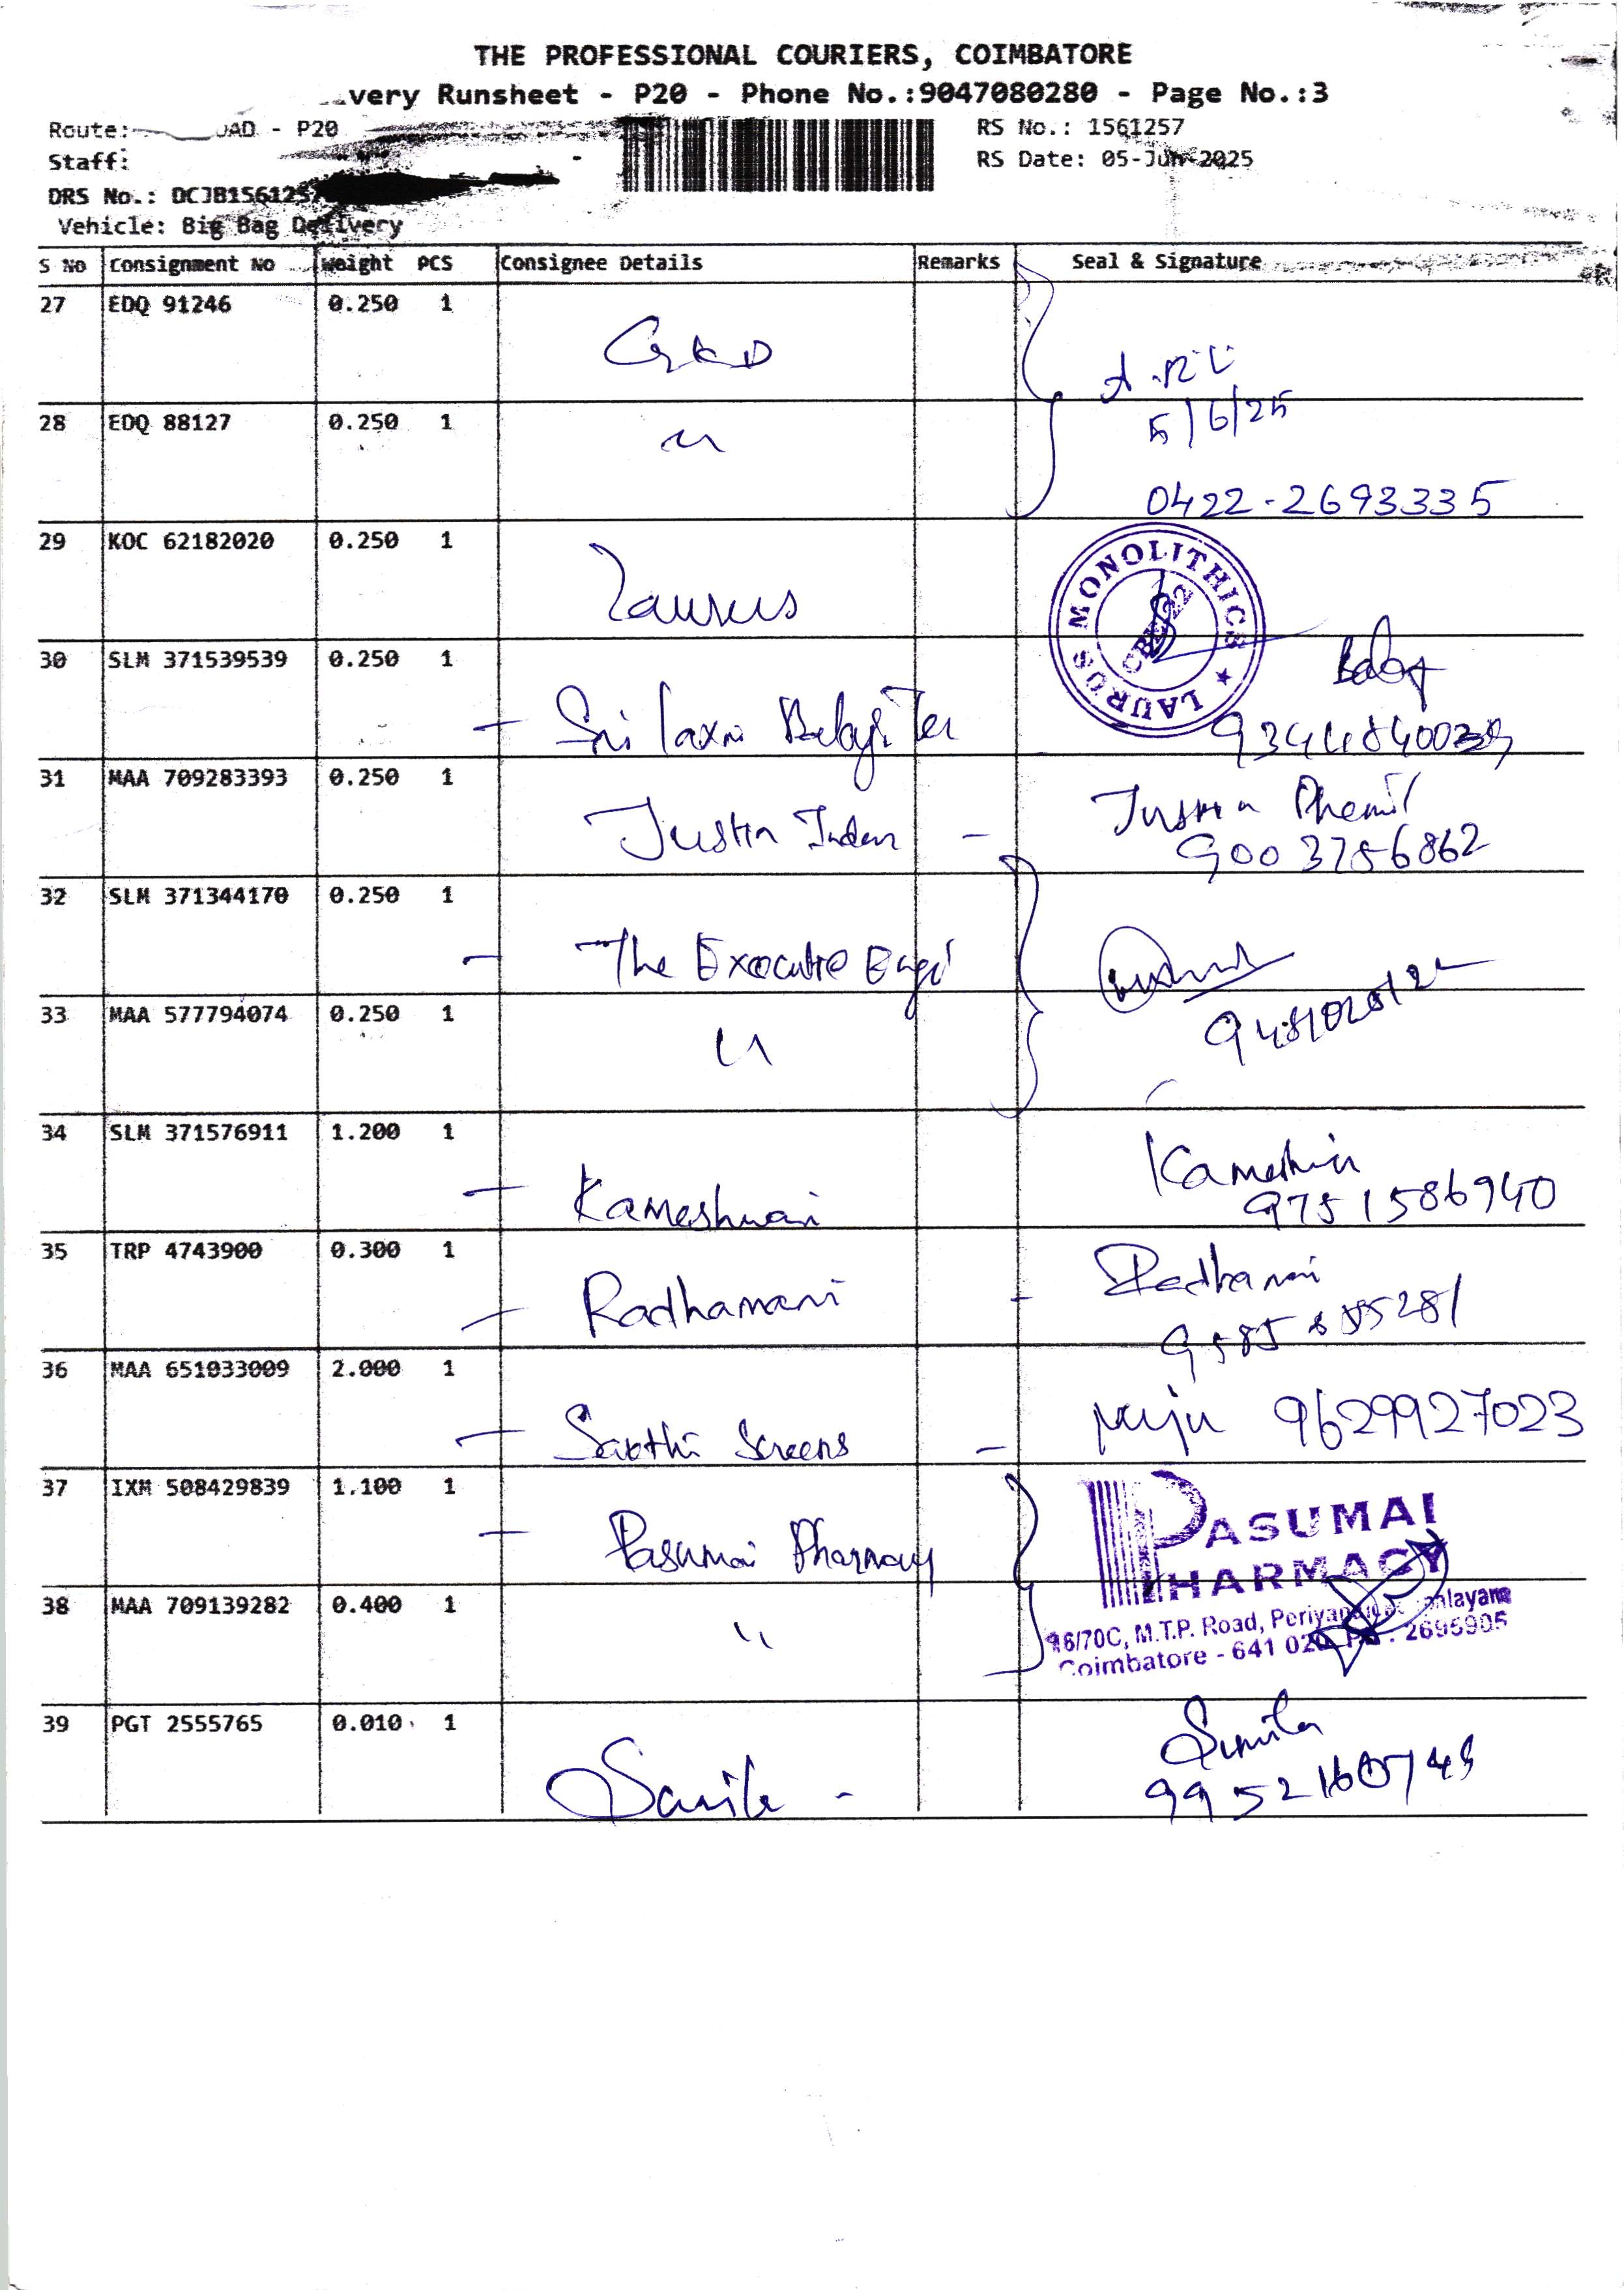 THE PROFESSIONAL COURIERS, COIMBATORE
very Runsheet - P20 - Phone No.:9047080280 - Page No.:3
Route: OAD - P20
RS No.: 1561257
Staff:
RS Date: 05-Jun-2025
DRS No.: DCJB156125
Vehicle: Big Bag Delivery
S No Consignment No Weight PCS Consignee Details Remarks Seal & Signature
27 EDQ 91246 0.250 1
GKD
5/6/25
28 EDQ 88127 0.250 1
"
0422-2693335
29 KOC 62182020 0.250 1
Laurus
LAURUS MONOLITHICS ★
30 SLM 371539539 0.250 1
- Sri laxmi
Baby
31 MAA 709283393 0.250 1
Justin -
Justin
9003756862
32 SLM 371344170 0.250 1
- The Executive Engi
33 MAA 577794074 0.250 1
"
34 SLM 371576911 1.200 1
- Kameshwari
9751586940
35 TRP 4743900 0.300 1
- Radhamani -
Radhamani
36 MAA 651033009 2.000 1
- Sakthi Screens -
9629927023
37 IXM 508429839 1.100 1
- Pasumai Pharmacy
PASUMAI
PHARMACY
38 MAA 709139282 0.400 1
"
16/70C, M.T.P. Road,
Coimbatore - 641 020. 2695905
39 PGT 2555765 0.010 1